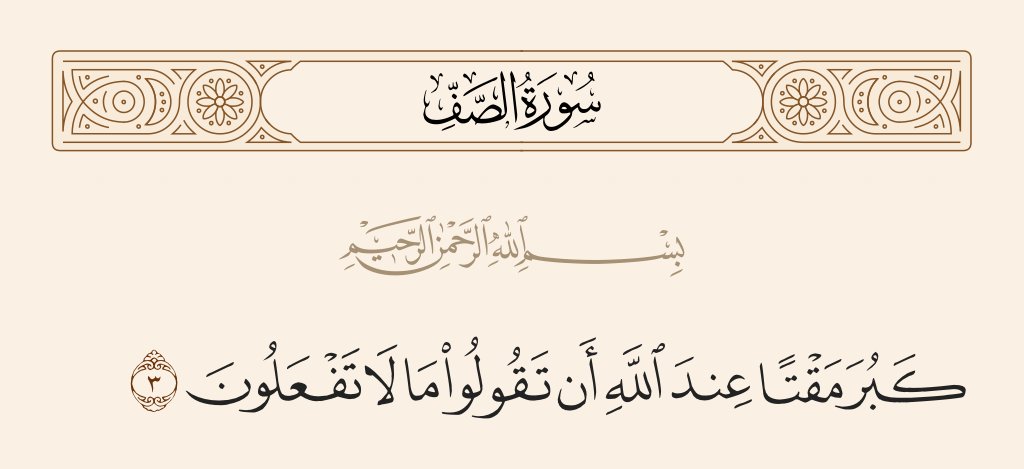 سُورَةُ الصَّفِّ
بِسْمِ ٱللَّهِ ٱلرَّحْمَٰنِ ٱلرَّحِيمِ
كَبُرَ مَقْتًا عِندَ ٱللَّهِ أَن تَقُولُوا۟ مَا لَا تَفْعَلُونَ ٣